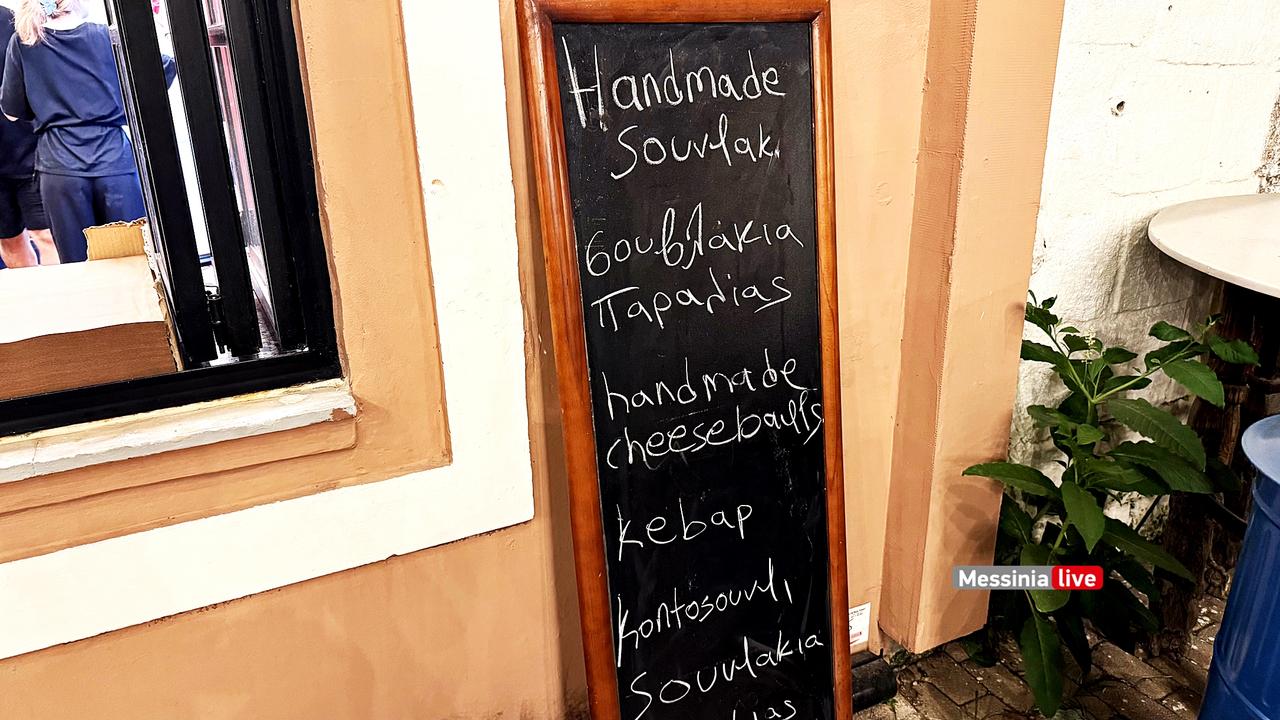 Handmade
Souvlaki
σουβλάκια
παραλίας
handmade
cheeseballs
kebap
kontosouvli
Souvlakia
Messinia live